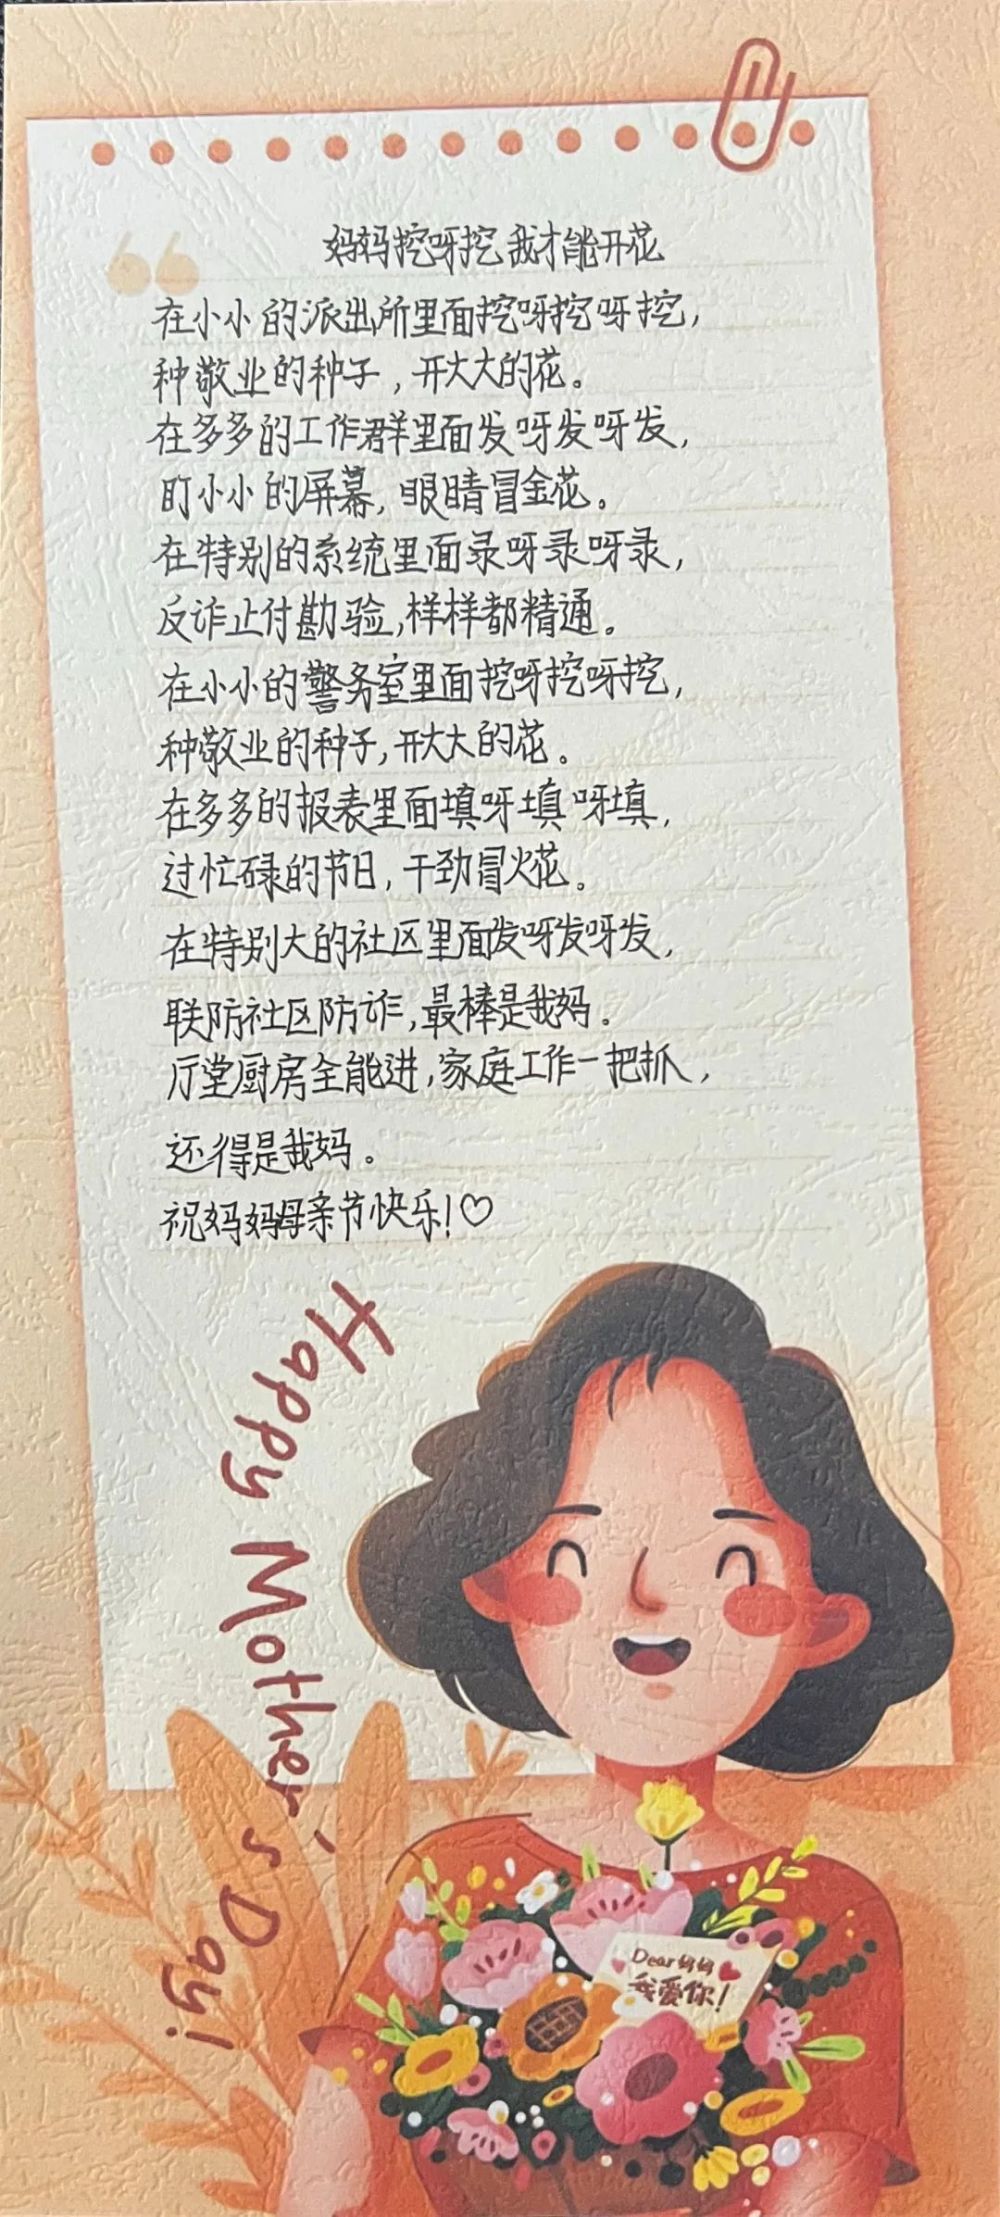 妈妈挖呀挖 我才能开花
在小小的派出所里面挖呀挖呀挖，
种敬业的种子，开大大的花。
在多多的工作群里面发呀发呀发，
盯小小的屏幕，眼睛冒金花。
在特别的系统里面录呀录呀录，
反诈止付勘验，样样都精通。
在小小的警务室里面挖呀挖呀挖，
种敬业的种子，开大大的花。
在多多的报表里面填呀填呀填，
过忙碌的节日，干劲冒火花。
在特别大的社区里面发呀发呀发，
联防社区防诈，最棒是我妈。
厅堂厨房全能进，家庭工作一把抓，
还得是我妈。
祝妈妈母亲节快乐！♡
Happy Mother's Day!
Dear 妈妈
我爱你！